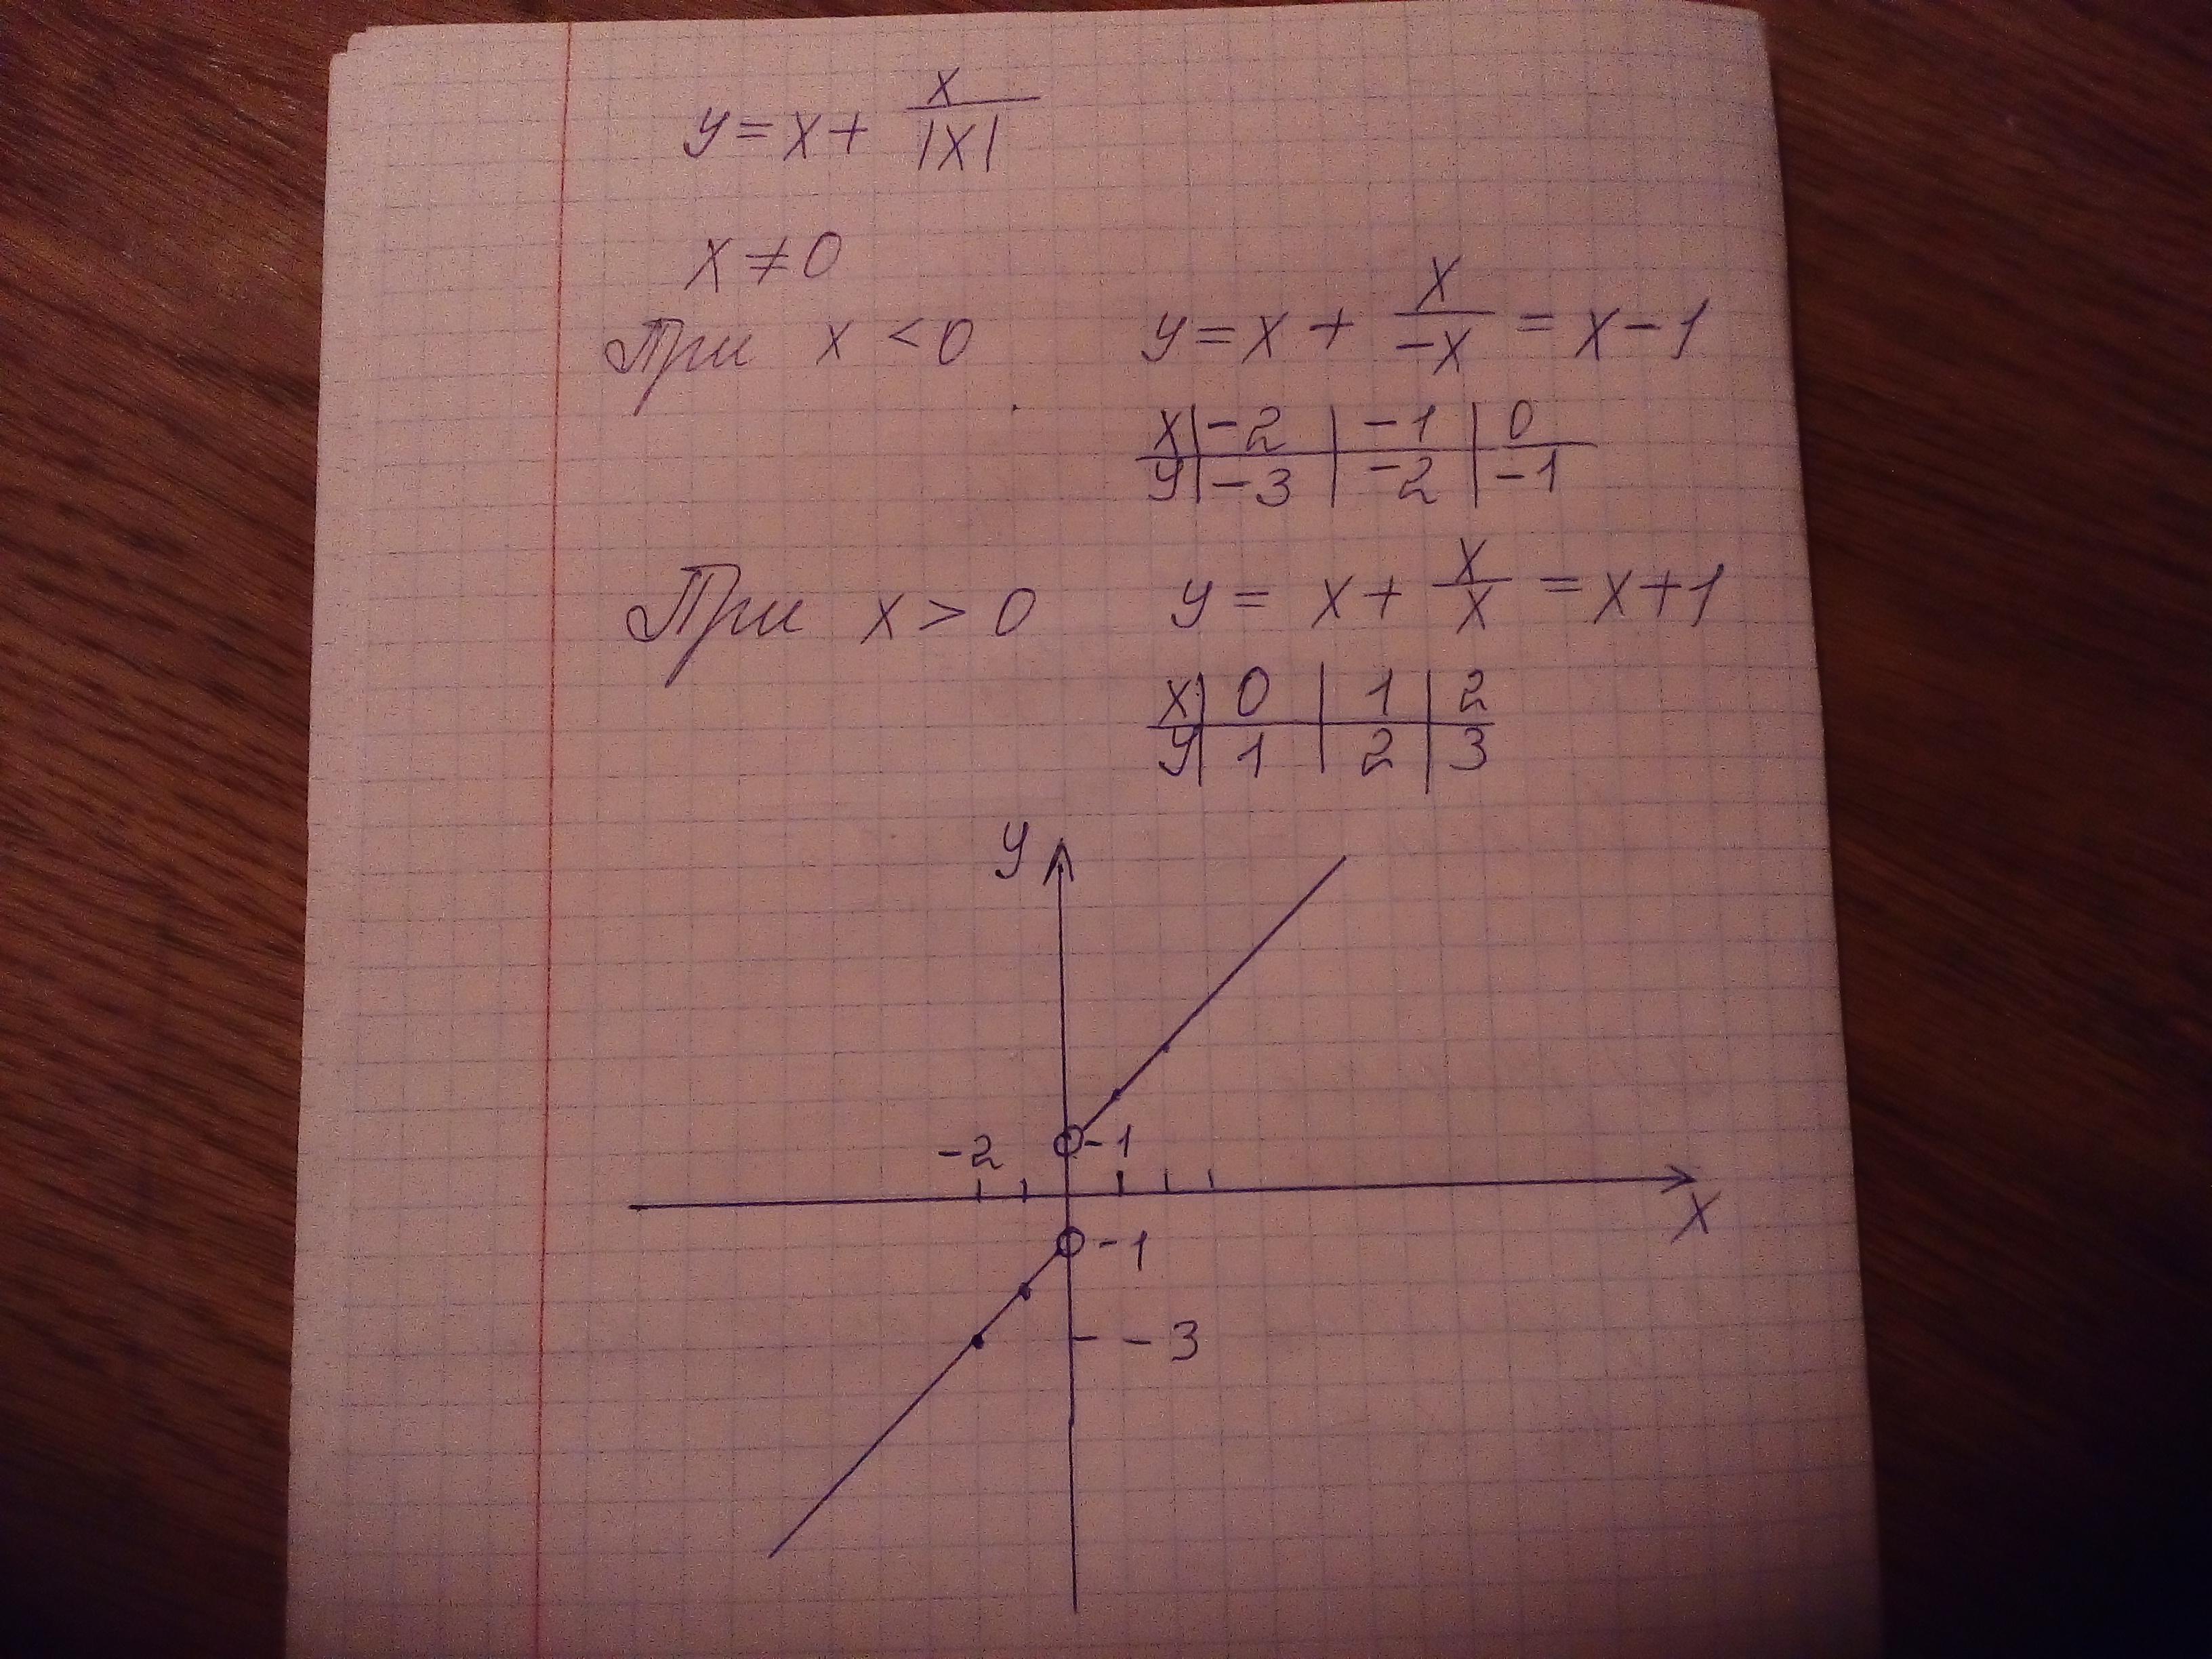 y = x + x/|x|
x ≠ 0
При x < 0 y = x + x/-x = x - 1
x | -2 | -1 | 0
y | -3 | -2 | -1
При x > 0 y = x + x/x = x + 1
x | 0 | 1 | 2
y | 1 | 2 | 3
y
-2 -1
x
-1
-3